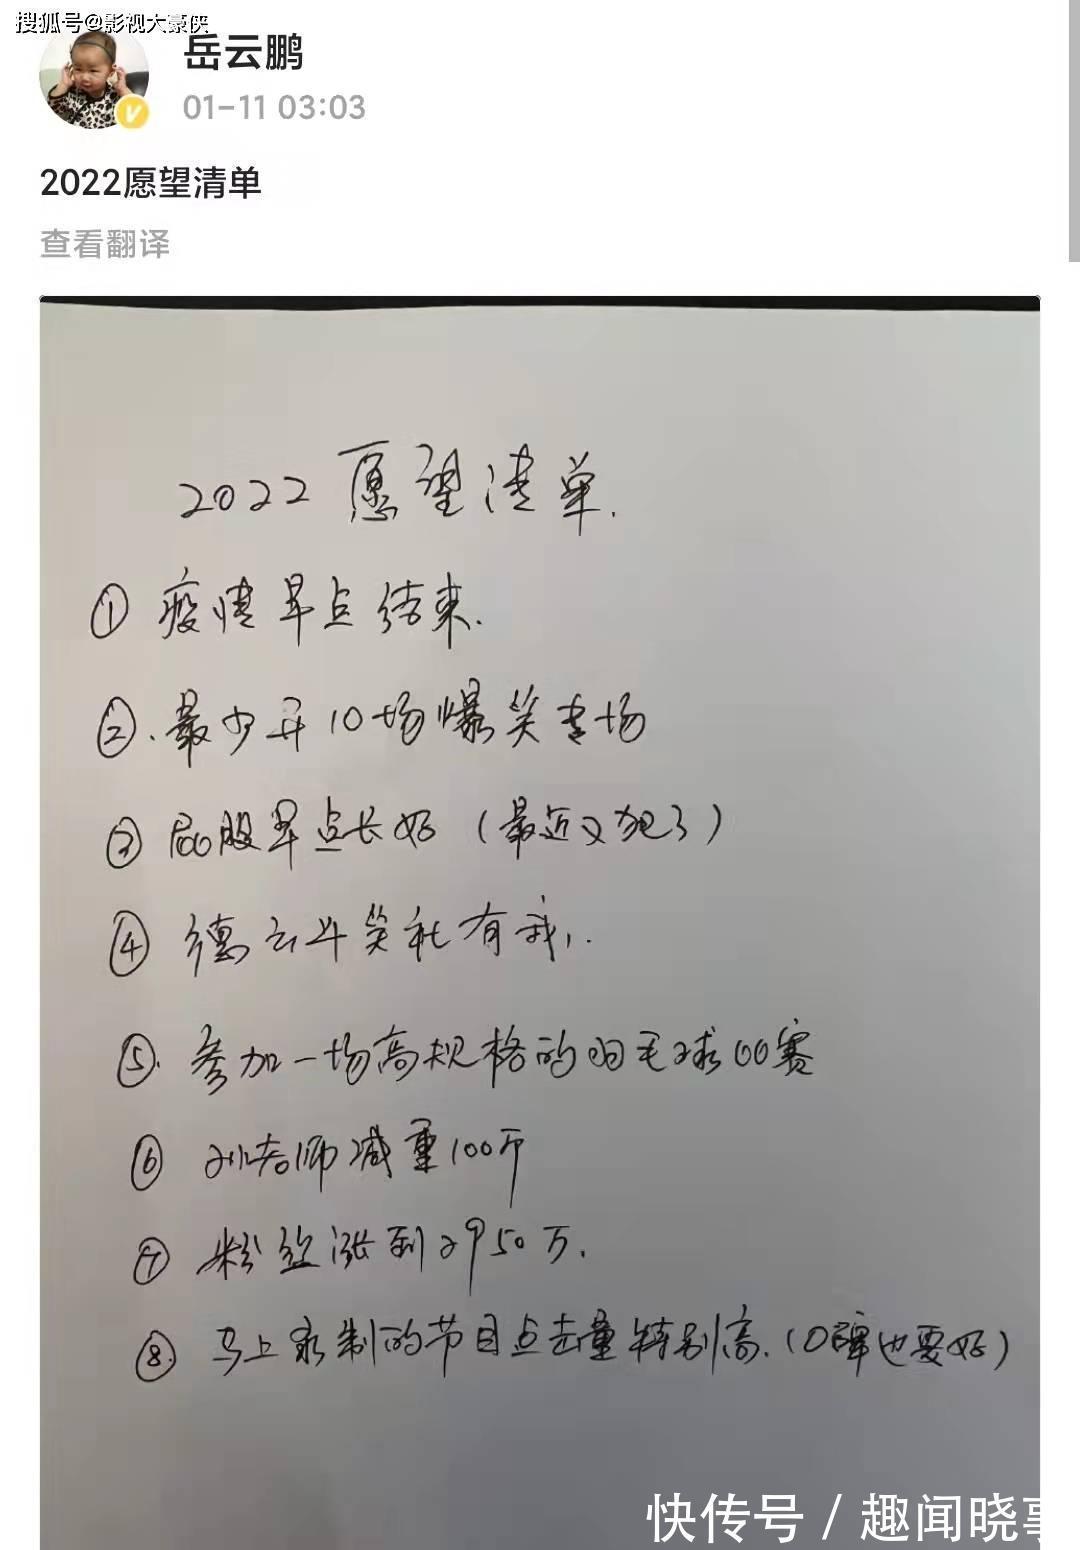 搜狐号@影视大豪侠
岳云鹏
01-11 03:03
2022愿望清单
查看翻译
2022愿望清单.
① 疫情早点结束.
②.最少开10场爆笑专场
③ 屁股早点长好（最近又犯了）
④ 德云斗笑社有我,..
⑤.参加一场高规格的羽毛球比赛
⑥ 孙老师减重100斤
⑦ 粉丝涨到2950万.
⑧.马上录制的节目点击量特别高.（口碑也要好）
快传号 / 趣闻晓事